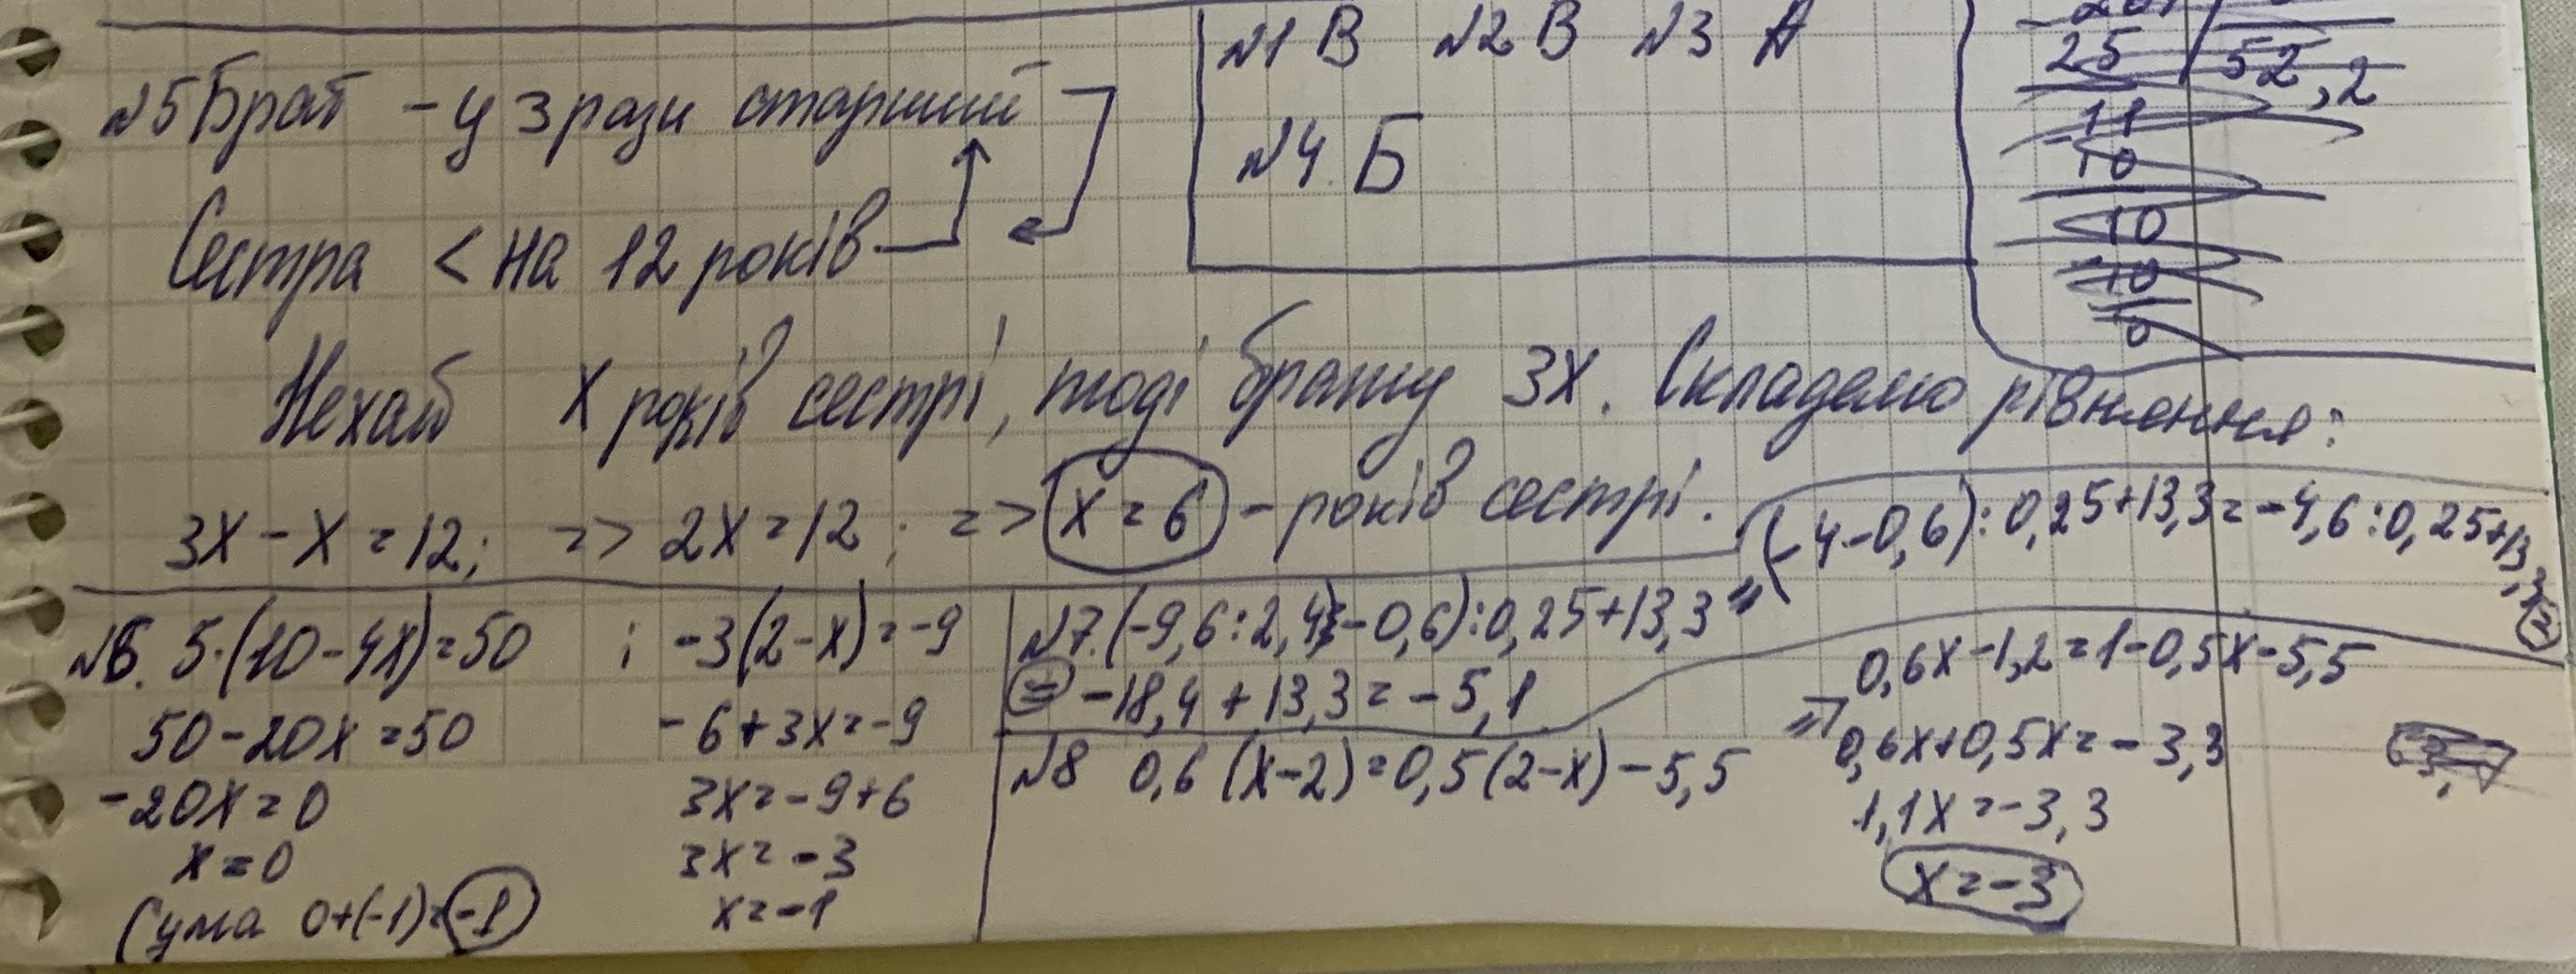 №1 В №2 В №3 А
№4. Б
25 52,2
11
10
10
10
0
№5 Брат - у 3 рази старший
Сестра < на 12 років
Нехай х років сестрі, тоді брату 3х. Складемо рівняння:
3х - х = 12; => 2х = 12; => х = 6 - років сестрі.
№6. 5·(10-4х)=50 ; -3(2-х)=-9
50-20х=50 -6+3х=-9
-20х=0 3х=-9+6
х=0 3х=-3
Сума 0+(-1)=-1 х=-1
№7. (-9,6:2,4-0,6):0,25+13,3=
(-4-0,6):0,25+13,3=-4,6:0,25+13,3=
= -18,4+13,3=-5,1
№8 0,6(х-2)=0,5(2-х)-5,5
0,6х-1,2=1-0,5х-5,5
=> 0,6х+0,5х=-3,3
1,1х=-3,3
х=-3